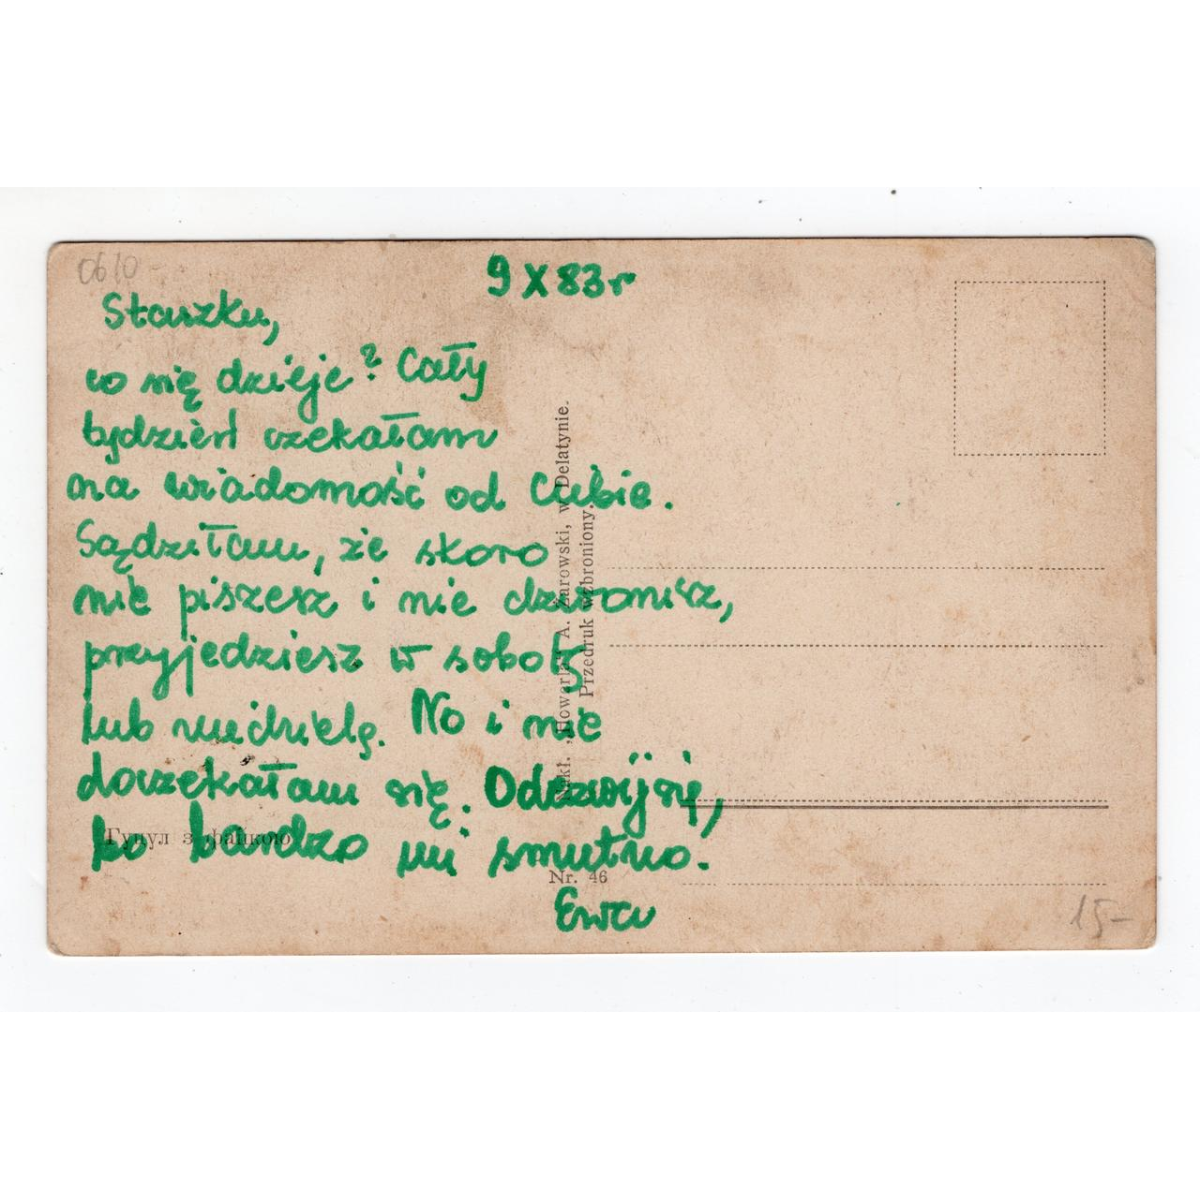 0610
9 X 83r
Staszku,
co się dzieje? Cały
tydzień czekałam
na wiadomość od Ciebie.
Sądziłam, że skoro
nie piszesz i nie dzwonisz,
przyjedziesz w sobotę
lub niedzielę. No i nie
doczekałam się. Odezwij się,
bo bardzo mi smutno.
Ewa
Nakł. „Howerla" A. Żarowski, w Delatynie.
Przedruk wzbroniony.
Гуцул з файкою
Nr. 46
15-